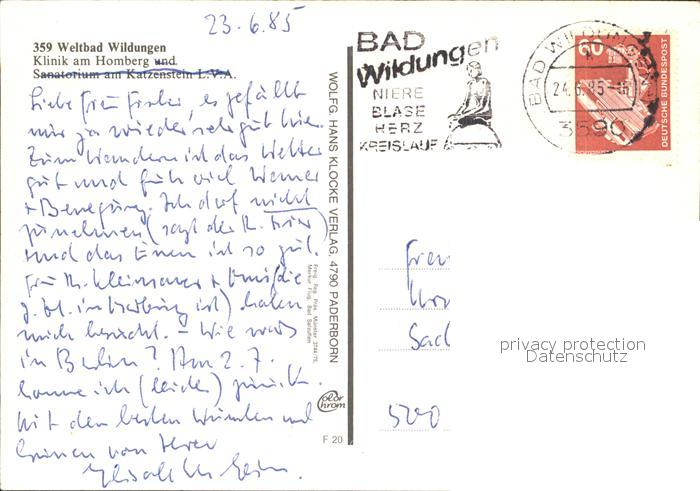 23.6.85
359 Weltbad Wildungen
Klinik am Homberg und
Sanatorium am Katzenstein L.V.A.
Liebe Frau es gefällt
mir ja wieder sehr gut hier.
Zum Wandern ist das Wetter
gut und für viel
+ Bewegung. Ich darf nicht
zunehmen (sagt der
und das Essen ist so gut.
Frau
z. Zt. in ist) haben
mich besucht. – Wie war's
in Berlin? Am 2.7.
komme ich (leider) zurück.
Mit den besten Wünschen und
Grüssen von Ihrer
Elisabeth
WOLFG. HANS KLOCKE VERLAG, 4790 PADERBORN
Freig. Reg. Präs. Münster
Color
chrom
F 20
BAD
Wildungen
NIERE
BLASE
HERZ
KREISLAUF
BAD WILDUNGEN
24.6.85-16
3590
60
DEUTSCHE BUNDESPOST
500
privacy protection
Datenschutz